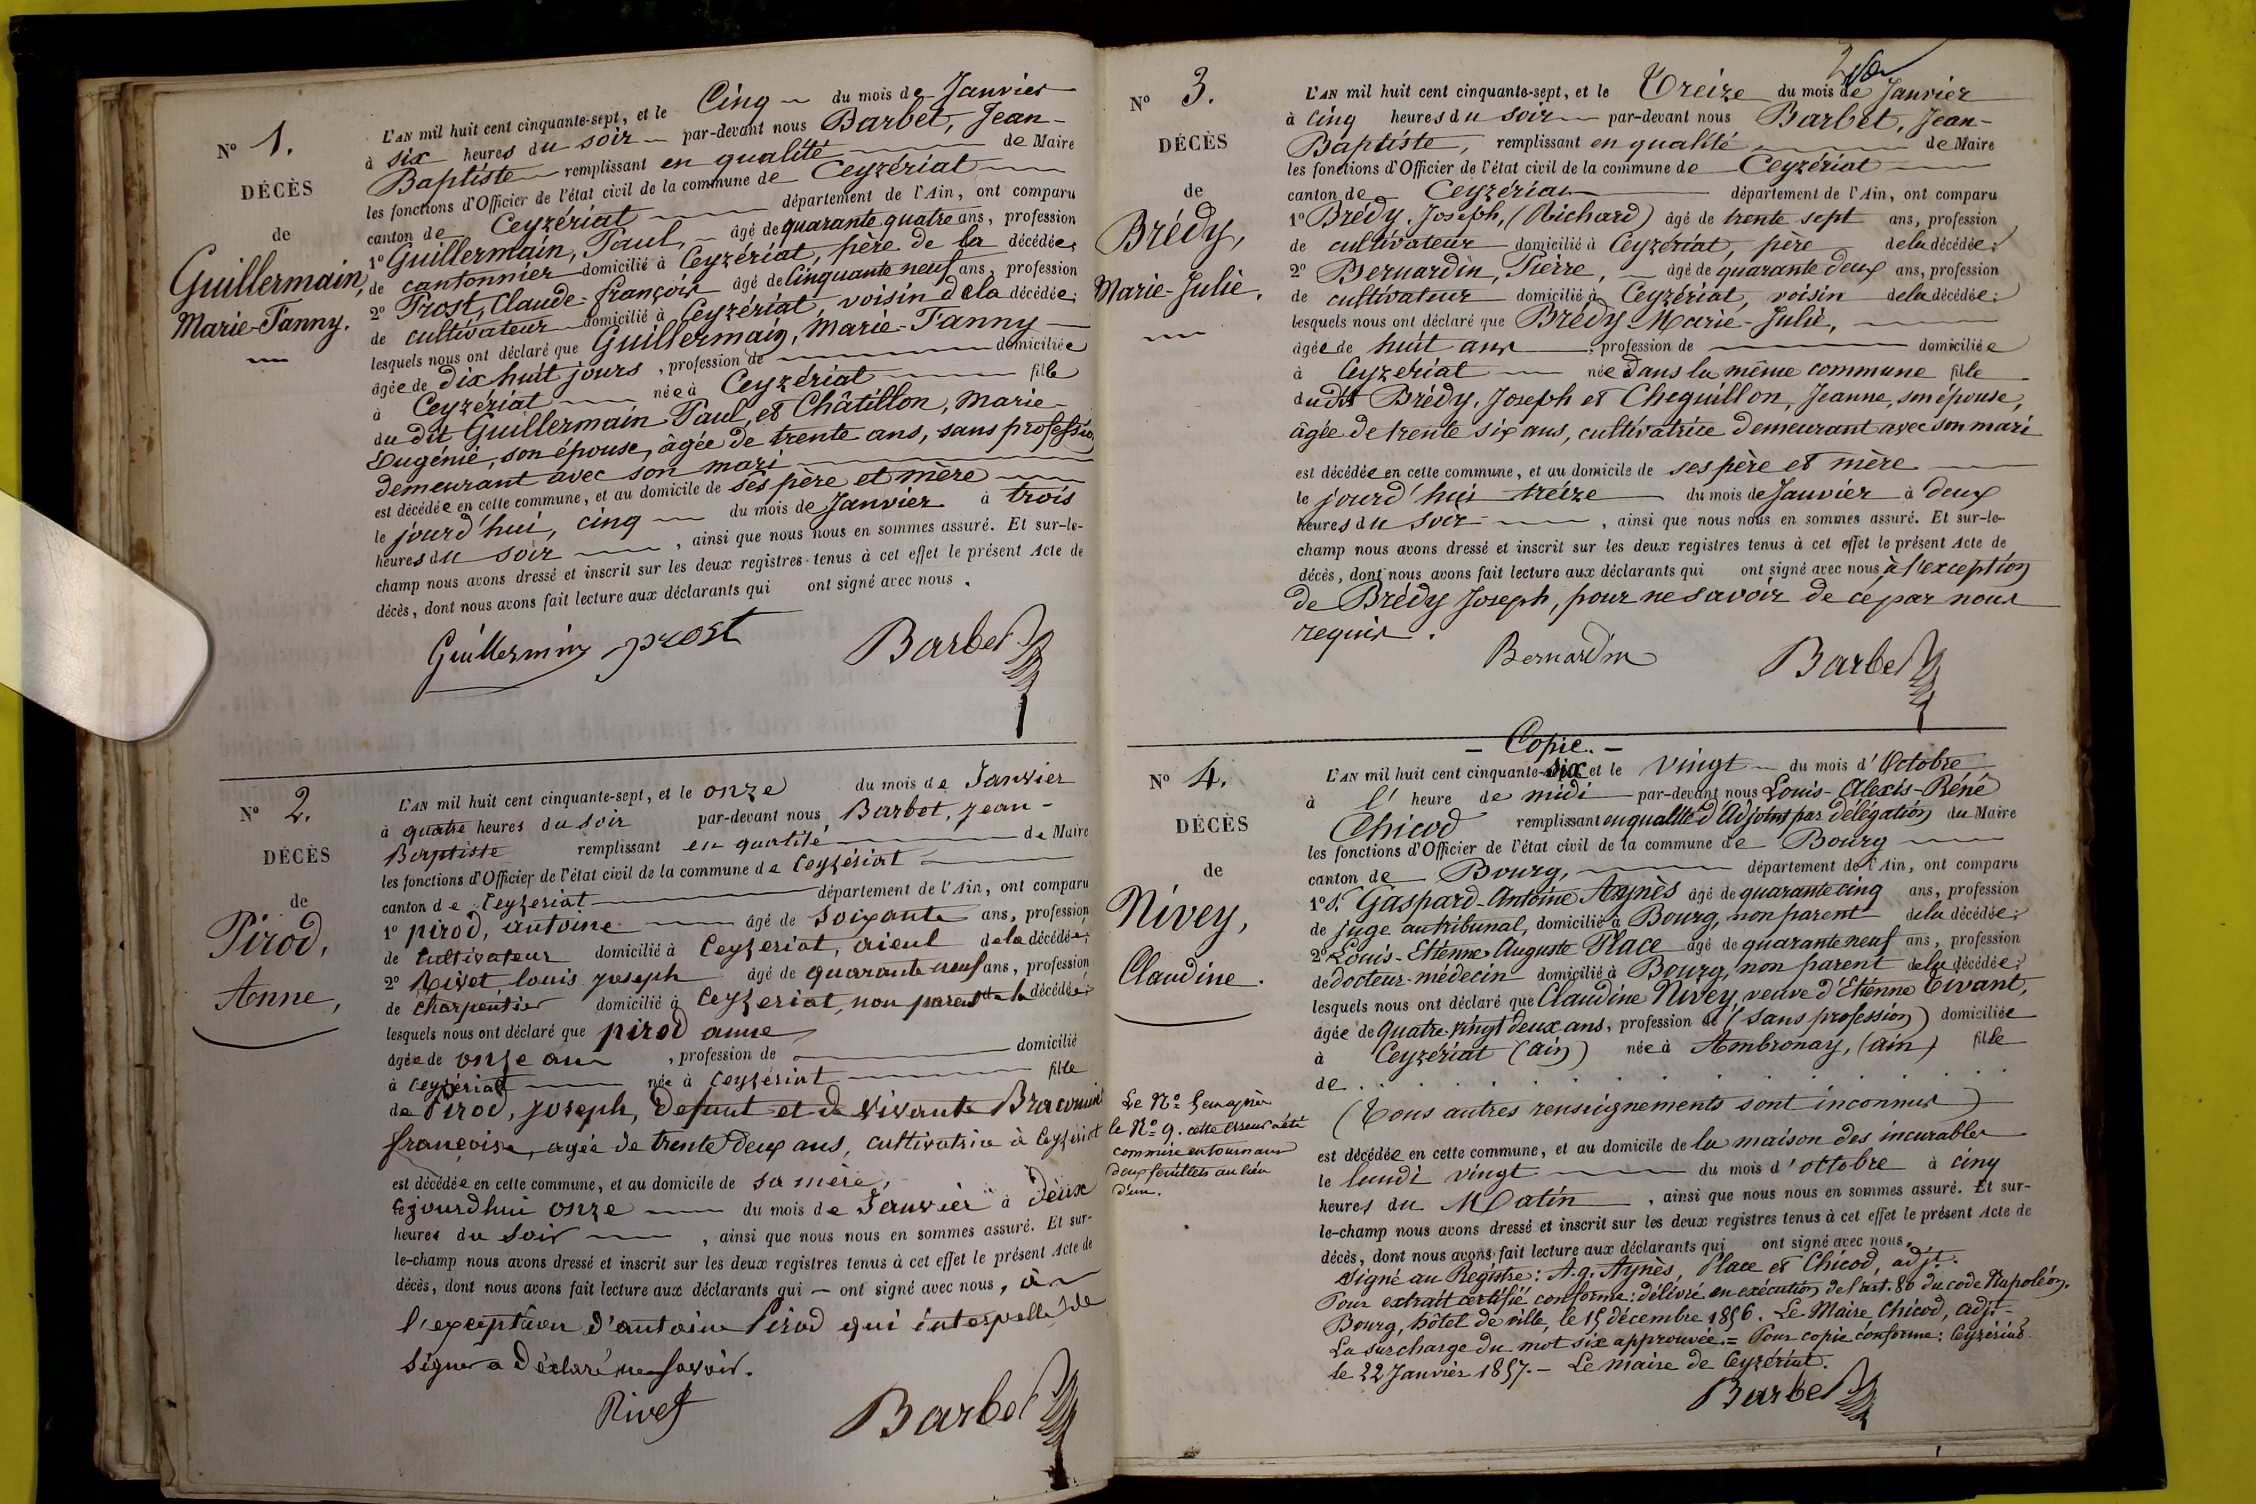 N° 1.
DÉCÈS
de
Guillermain,
Marie-Fanny.
L'AN mil huit cent cinquante-sept, et le Cinq du mois de Janvier
à six heures du soir par-devant nous Barbet, Jean-
Baptiste remplissant en qualité de Maire
les fonctions d'Officier de l'état civil de la commune de Ceyzériat
canton de Ceyzériat département de l'Ain, ont comparu
1° Guillermain, Paul, âgé de quarante quatre ans, profession
de cantonnier domicilié à Ceyzériat, père de la décédée;
2° Prost, Claude-françois âgé de Cinquante neuf ans, profession
de cultivateur domicilié à Ceyzériat, voisin de la décédée;
lesquels nous ont déclaré que Guillermain, Marie-Fanny
âgée de dix huit jours, profession de domiciliée
à Ceyzériat née à Ceyzériat fille
du dit Guillermain Paul, et Châtillon, Marie-
Eugénie, son épouse, âgée de trente ans, sans profession
demeurant avec son mari
est décédée en cette commune, et au domicile de ses père et mère
le jourd'hui, cinq du mois de Janvier à trois
heures du soir, ainsi que nous nous en sommes assuré. Et sur-le-
champ nous avons dressé et inscrit sur les deux registres tenus à cet effet le présent Acte de
décès, dont nous avons fait lecture aux déclarants qui ont signé avec nous.
Guillermin prost Barbet
N° 2.
DÉCÈS
de
Pirod,
Anne,
L'AN mil huit cent cinquante-sept, et le onze du mois de Janvier
à quatre heures du soir par-devant nous Barbet, jean-
Baptiste remplissant en qualité de Maire
les fonctions d'Officier de l'état civil de la commune de Ceyzériat
canton de Ceyzeriat département de l'Ain, ont comparu
1° pirod, antoine âgé de soixante ans, profession
de Cultivateur domicilié à Ceyzeriat, aieul de la décédée;
2° Rivet, louis joseph âgé de quarante neuf ans, profession
de charpentier domicilié à Ceyzeriat, non parent de la décédée;
lesquels nous ont déclaré que pirod anne
âgée de onze ans, profession de domicilié
à Ceyzériat née à Ceyzériat fille
de Pirod, joseph, defunt et de vivante
françoise, agée de trente deux ans, cultivatrice à Ceyzériat
est décédée en cette commune, et au domicile de sa mère,
le jourdhui onze du mois de Janvier à deux
heures du soir, ainsi que nous nous en sommes assuré. Et sur-
le-champ nous avons dressé et inscrit sur les deux registres tenus à cet effet le présent Acte de
décès, dont nous avons fait lecture aux déclarants qui — ont signé avec nous, à
l'exception d'antoine Pirod qui interpellé de
signer a déclaré ne savoir.
Rivet Barbet
N° 3.
DÉCÈS
de
Brédy,
Marie-Julie.
L'AN mil huit cent cinquante-sept, et le Treize du mois de Janvier
à cinq heures du soir par-devant nous Barbet, Jean-
Baptiste, remplissant en qualité de Maire
les fonctions d'Officier de l'état civil de la commune de Ceyzériat
canton de Ceyzériat département de l'Ain, ont comparu
1° Brédy, Joseph, (Richard) âgé de trente sept ans, profession
de cultivateur domicilié à Ceyzériat, père de la décédée;
2° Bernardin, Pierre, âgé de quarante deux ans, profession
de cultivateur domicilié à Ceyzériat, voisin de la décédée;
lesquels nous ont déclaré que Brédy Marie-Julie,
âgée de huit ans, profession de domiciliée
à Ceyzériat née dans la même commune fille
dudit Brédy, Joseph et Cheguillon, Jeanne, son épouse,
âgée de trente six ans, cultivatrice demeurant avec son mari
est décédée en cette commune, et au domicile de ses père et mère
le jourd'hui treize du mois de Janvier à deux
heures du soir, ainsi que nous nous en sommes assuré. Et sur-le-
champ nous avons dressé et inscrit sur les deux registres tenus à cet effet le présent Acte de
décès, dont nous avons fait lecture aux déclarants qui ont signé avec nous à l'exception
de Brédy Joseph, pour ne savoir de ce par nous
requis.
Bernardin Barbet
N° 4.
DÉCÈS
de
Nivey,
Claudine.
Le N° 5 est après
le N° 9. cette erreur a été
commise en tournant
deux feuillets au lieu
d'un.
— Copie. —
L'AN mil huit cent cinquante-six et le vingt du mois d'Octobre
à l'heure de midi par-devant nous Louis-Alexis-Réné
Chicod remplissant en qualité d'Adjoint par délégation du Maire
les fonctions d'Officier de l'état civil de la commune de Bourg
canton de Bourg, département de l'Ain, ont comparu
1° S. Gaspard-Antoine Aynès âgé de quarante cinq ans, profession
de juge au tribunal, domicilié à Bourg, non parent de la décédée;
2° Louis-Etienne-Auguste Place âgé de quarante neuf ans, profession
de docteur-médecin domicilié à Bourg, non parent de la décédée;
lesquels nous ont déclaré que Claudine Nivey, veuve d'Etienne Tivant,
âgée de quatre-vingt deux ans, profession de (sans profession) domiciliée
à Ceyzériat (ain) née à Ambronay, (ain) fille
de . . . . . . . . . .
(Tous autres renseignements sont inconnus)
est décédée en cette commune, et au domicile de la maison des incurables
le lundi vingt du mois d'octobre à cinq
heures du Matin, ainsi que nous nous en sommes assuré. Et sur-
le-champ nous avons dressé et inscrit sur les deux registres tenus à cet effet le présent Acte de
décès, dont nous avons fait lecture aux déclarants qui ont signé avec nous.
Signé au Registre: A. g. Aynès, Place et Chicod, adj.t.
Pour extrait certifié conforme: délivré en exécution de l'art. 80 du code Napoléon.
Bourg, hôtel de ville, le 15 décembre 1856. Le Maire, Chicod, adjt.
La surcharge du mot six approuvée. = Pour copie conforme: Ceyzériat
le 22 Janvier 1857. — Le maire de Ceyzériat.
Barbet